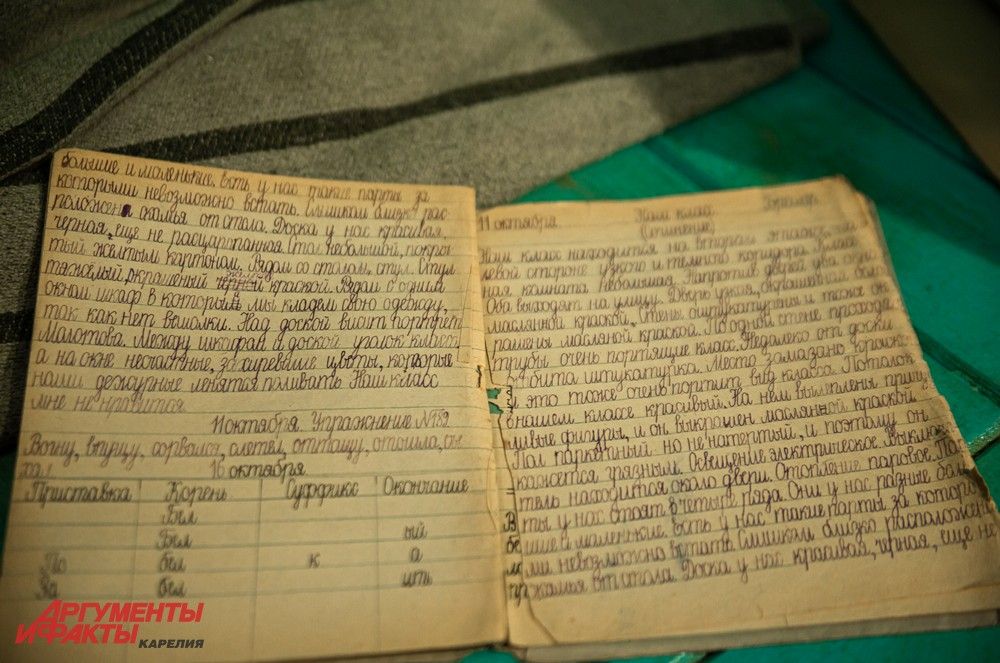 большие и маленькие. Есть у нас такие парты за
которыми невозможно встать. Слишком близко рас-
положена скамья от стола. Доска у нас красивая,
черная, еще не расцарпанная. Стол небольшой, покры
тый желтым картоном. Рядом со столом, стул. Стул
тяжёлый, окрашеный краской. Рядом с одним
окном шкаф в который мы кладем свою одежду,
так как нет вешалки. Над доской висит портрет
Молотова. Между шкафом и доской уголок класса
а на окне несчастные, захиревшие цветы, которые
наши дежурные ленятся поливать. Наш класс
мне не нравится
11 октября. Упражнение №
Вочну, впущу, сорвался, слетел, оттащу, отошла, сы
пал
16 октября
Приставка Корень Суффикс Окончание
Был
Был ый
По бел к а
За бел ить
11 октября Наш класс.
(сочинение)
Наш класс находится на втором этаже, на
левой стороне узкого и темного коридора. Класс
ная комната небольшая. Напротив дверей два окна
Оба выходят на улицу. Дверь узкая, окрашена бело
масляной краской. Стены оштукатурены и тоже ок
рашены масляной краской. По одной стене проходя
трубы очень портящие класс. Недалеко от доски
отбита штукатурка. Место замазано, хорошо
и это тоже очень портит вид класса. Потолок
в нашем классе красивый. На нем вылеплены причу
дливые фигуры, и он выкрашен масляной краской
Пол паркетный но не натертый, и поэтому он
кажется грязным. Освещение электрическое. Выключа
тель находится около двери. Отопление паровое. Па
рты у нас стоят в четыре ряда. Они у нас разные боль
шие и маленькие. Есть у нас такие парты за которы
ми невозможно встать. Слишком близко расположена
скамья от стола. Доска у нас красивая, черная, еще не
АРГУМЕНТЫ
И ФАКТЫ
КАРЕЛИЯ